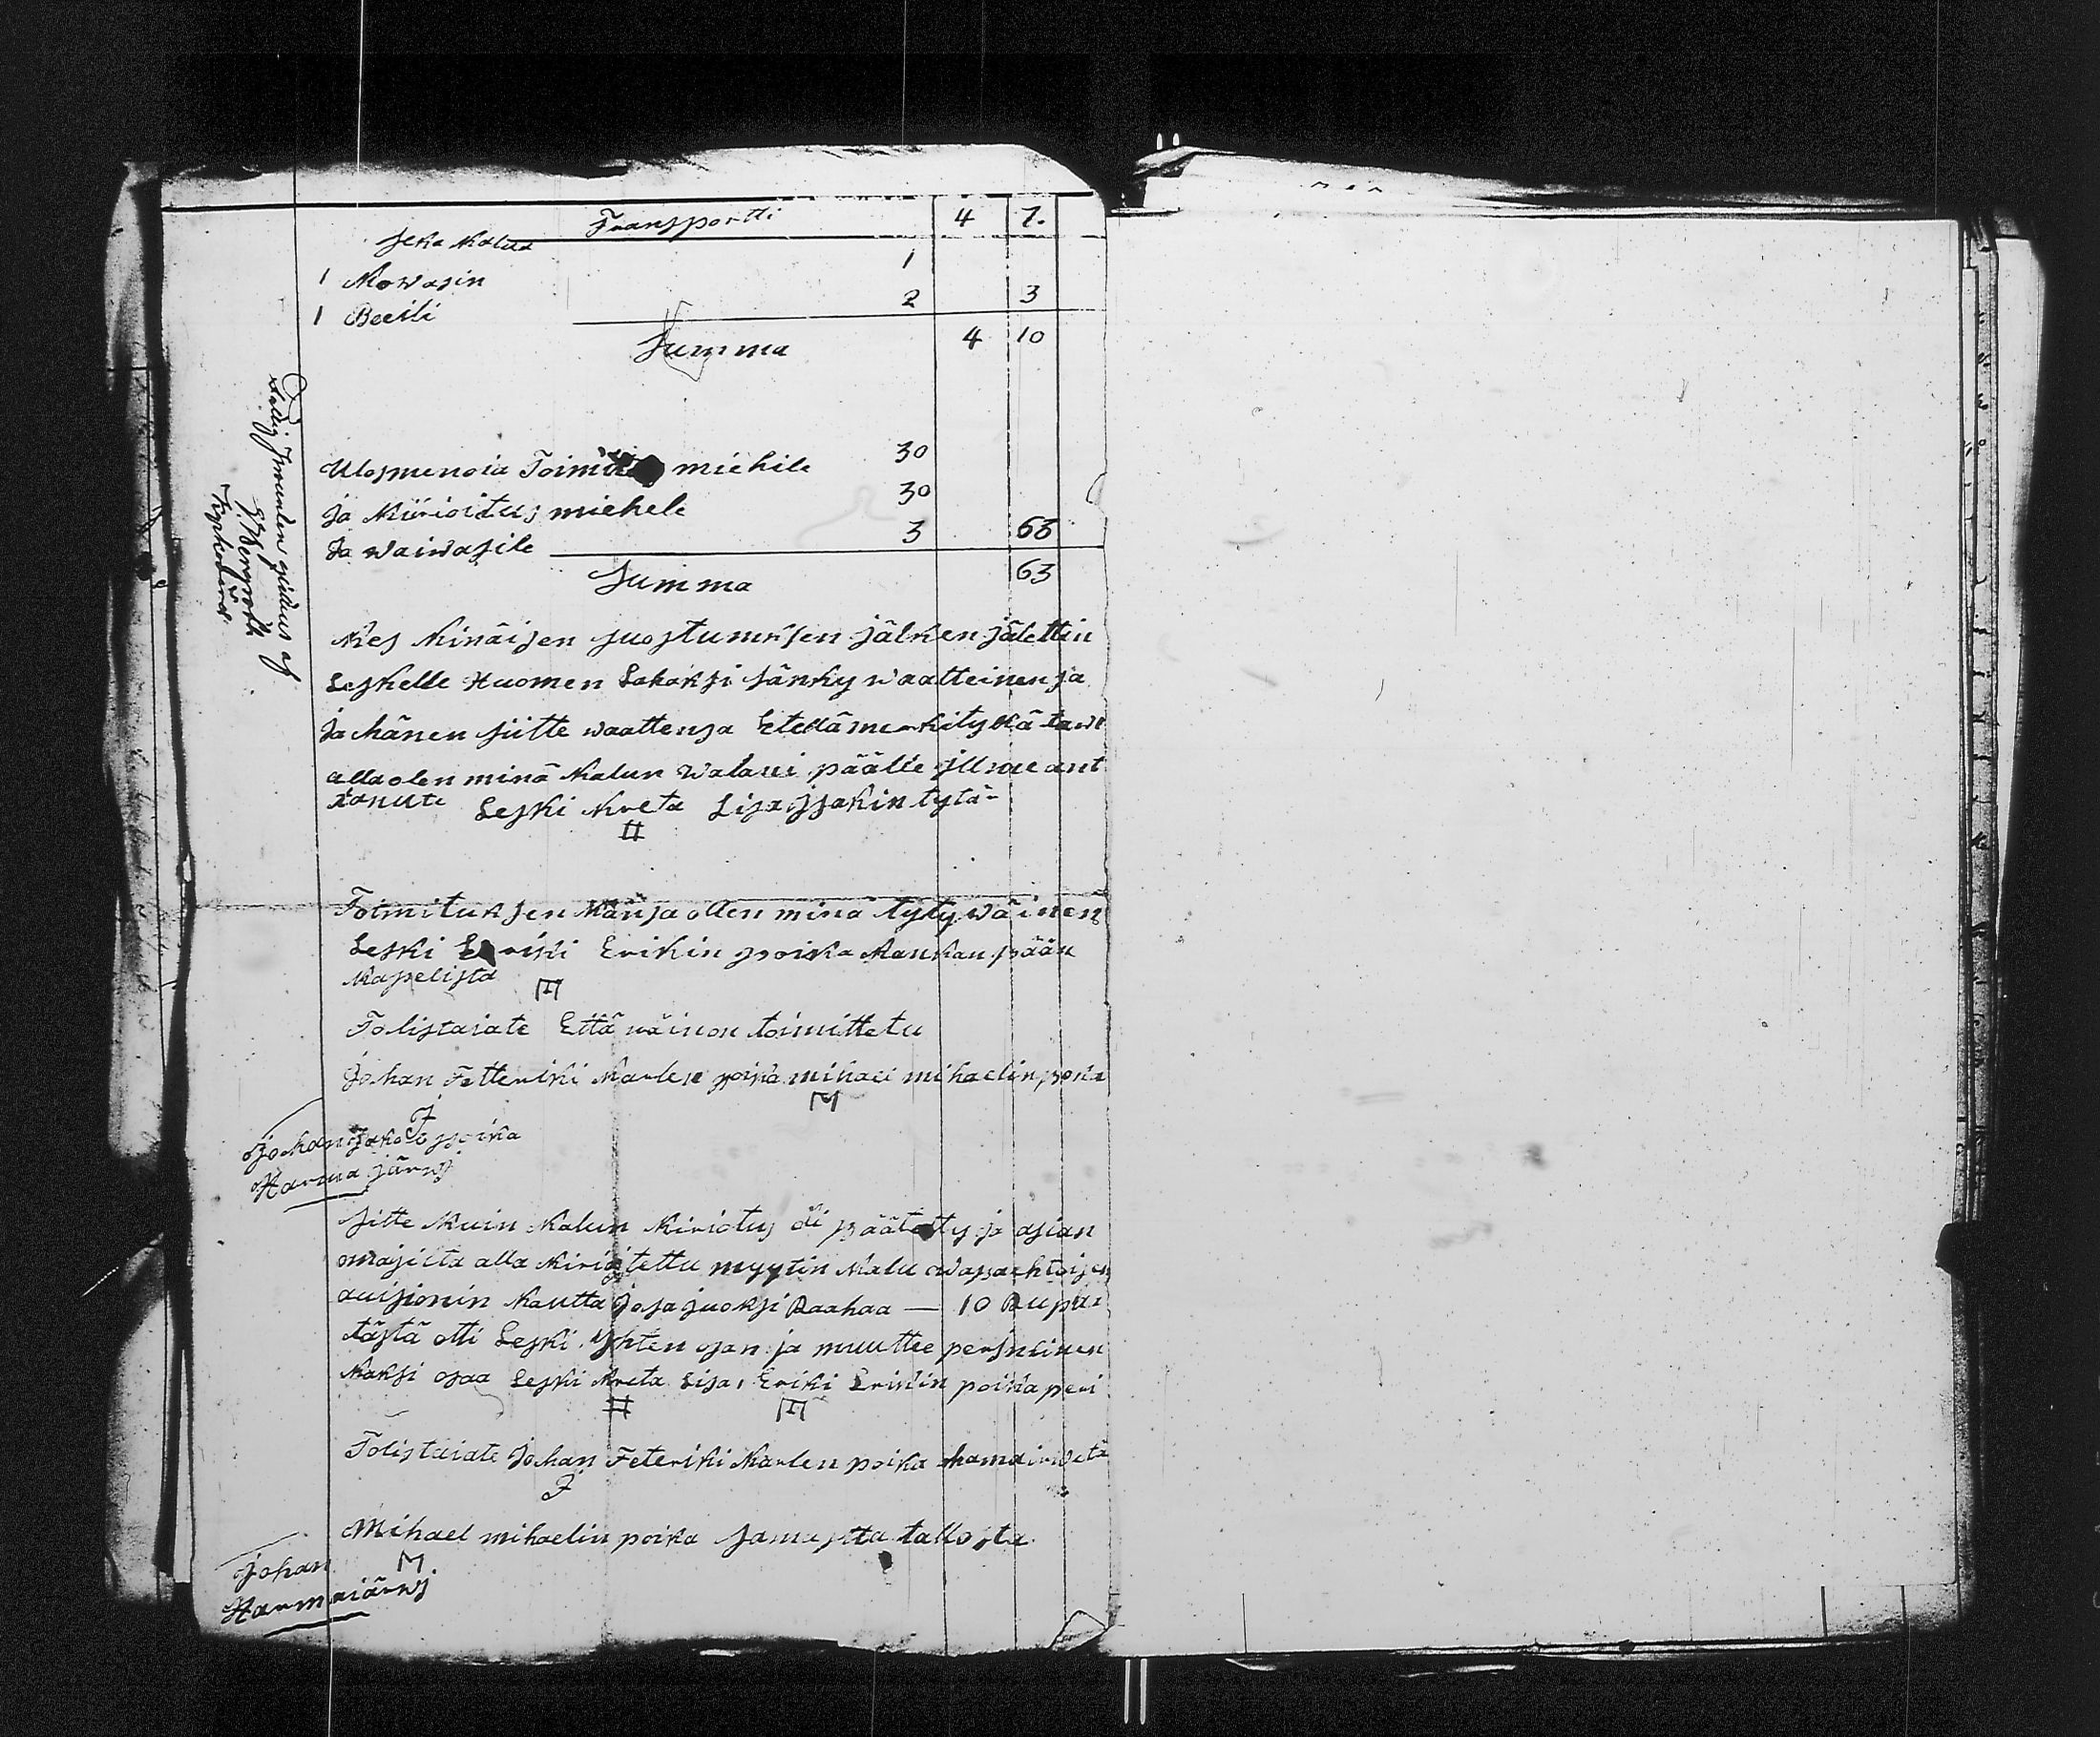 Transportti 4 7.
seka kalua
1 Kowasin 1
1 Beeili 2 3
Summa 4 10
Ulosmenoia Toimitus miehile 30
ja Kiirioitus miehele 30
ja waiwasile 3 63
Summa 63
Kes kinäisen suostumksen jälken jätettin
Leskelle Huomen Lahaksi sänky waatteinensa
ja hänen siitte waattensa Etellämerkityllä tawa
alla olen minä kalun walani päälle illmeant
tanute Leski Kreta Lisa Isakin tytär
Toimituksen kansa ollen minä tytywäinen
Leski Eriki Erikin poika Kankanpään
Kapelista
Tolistaiate Että näin on toimittetu
Johan Fetteriki Karlen poika mikael mikaelin poika
Johan Jakos poika
Harma järwj
Sitte kuin kalun kiriotus oli päätetty ja asian
omasilta alla kirioitettu myytin kalu wapaehtoisen
auisionin kautta josa juoksi Raahaa — 10 Rupui
tästä otti Leski yhten osan ja muuttee persnlinen
kaksi osaa Leski Kreta Lisa, Eriki Erikin poika peri
Tolistaiate Johan Feteriki Karlen poika
Mihael mihaelin poika samasta tallosta
Johan
Harmaiärwj